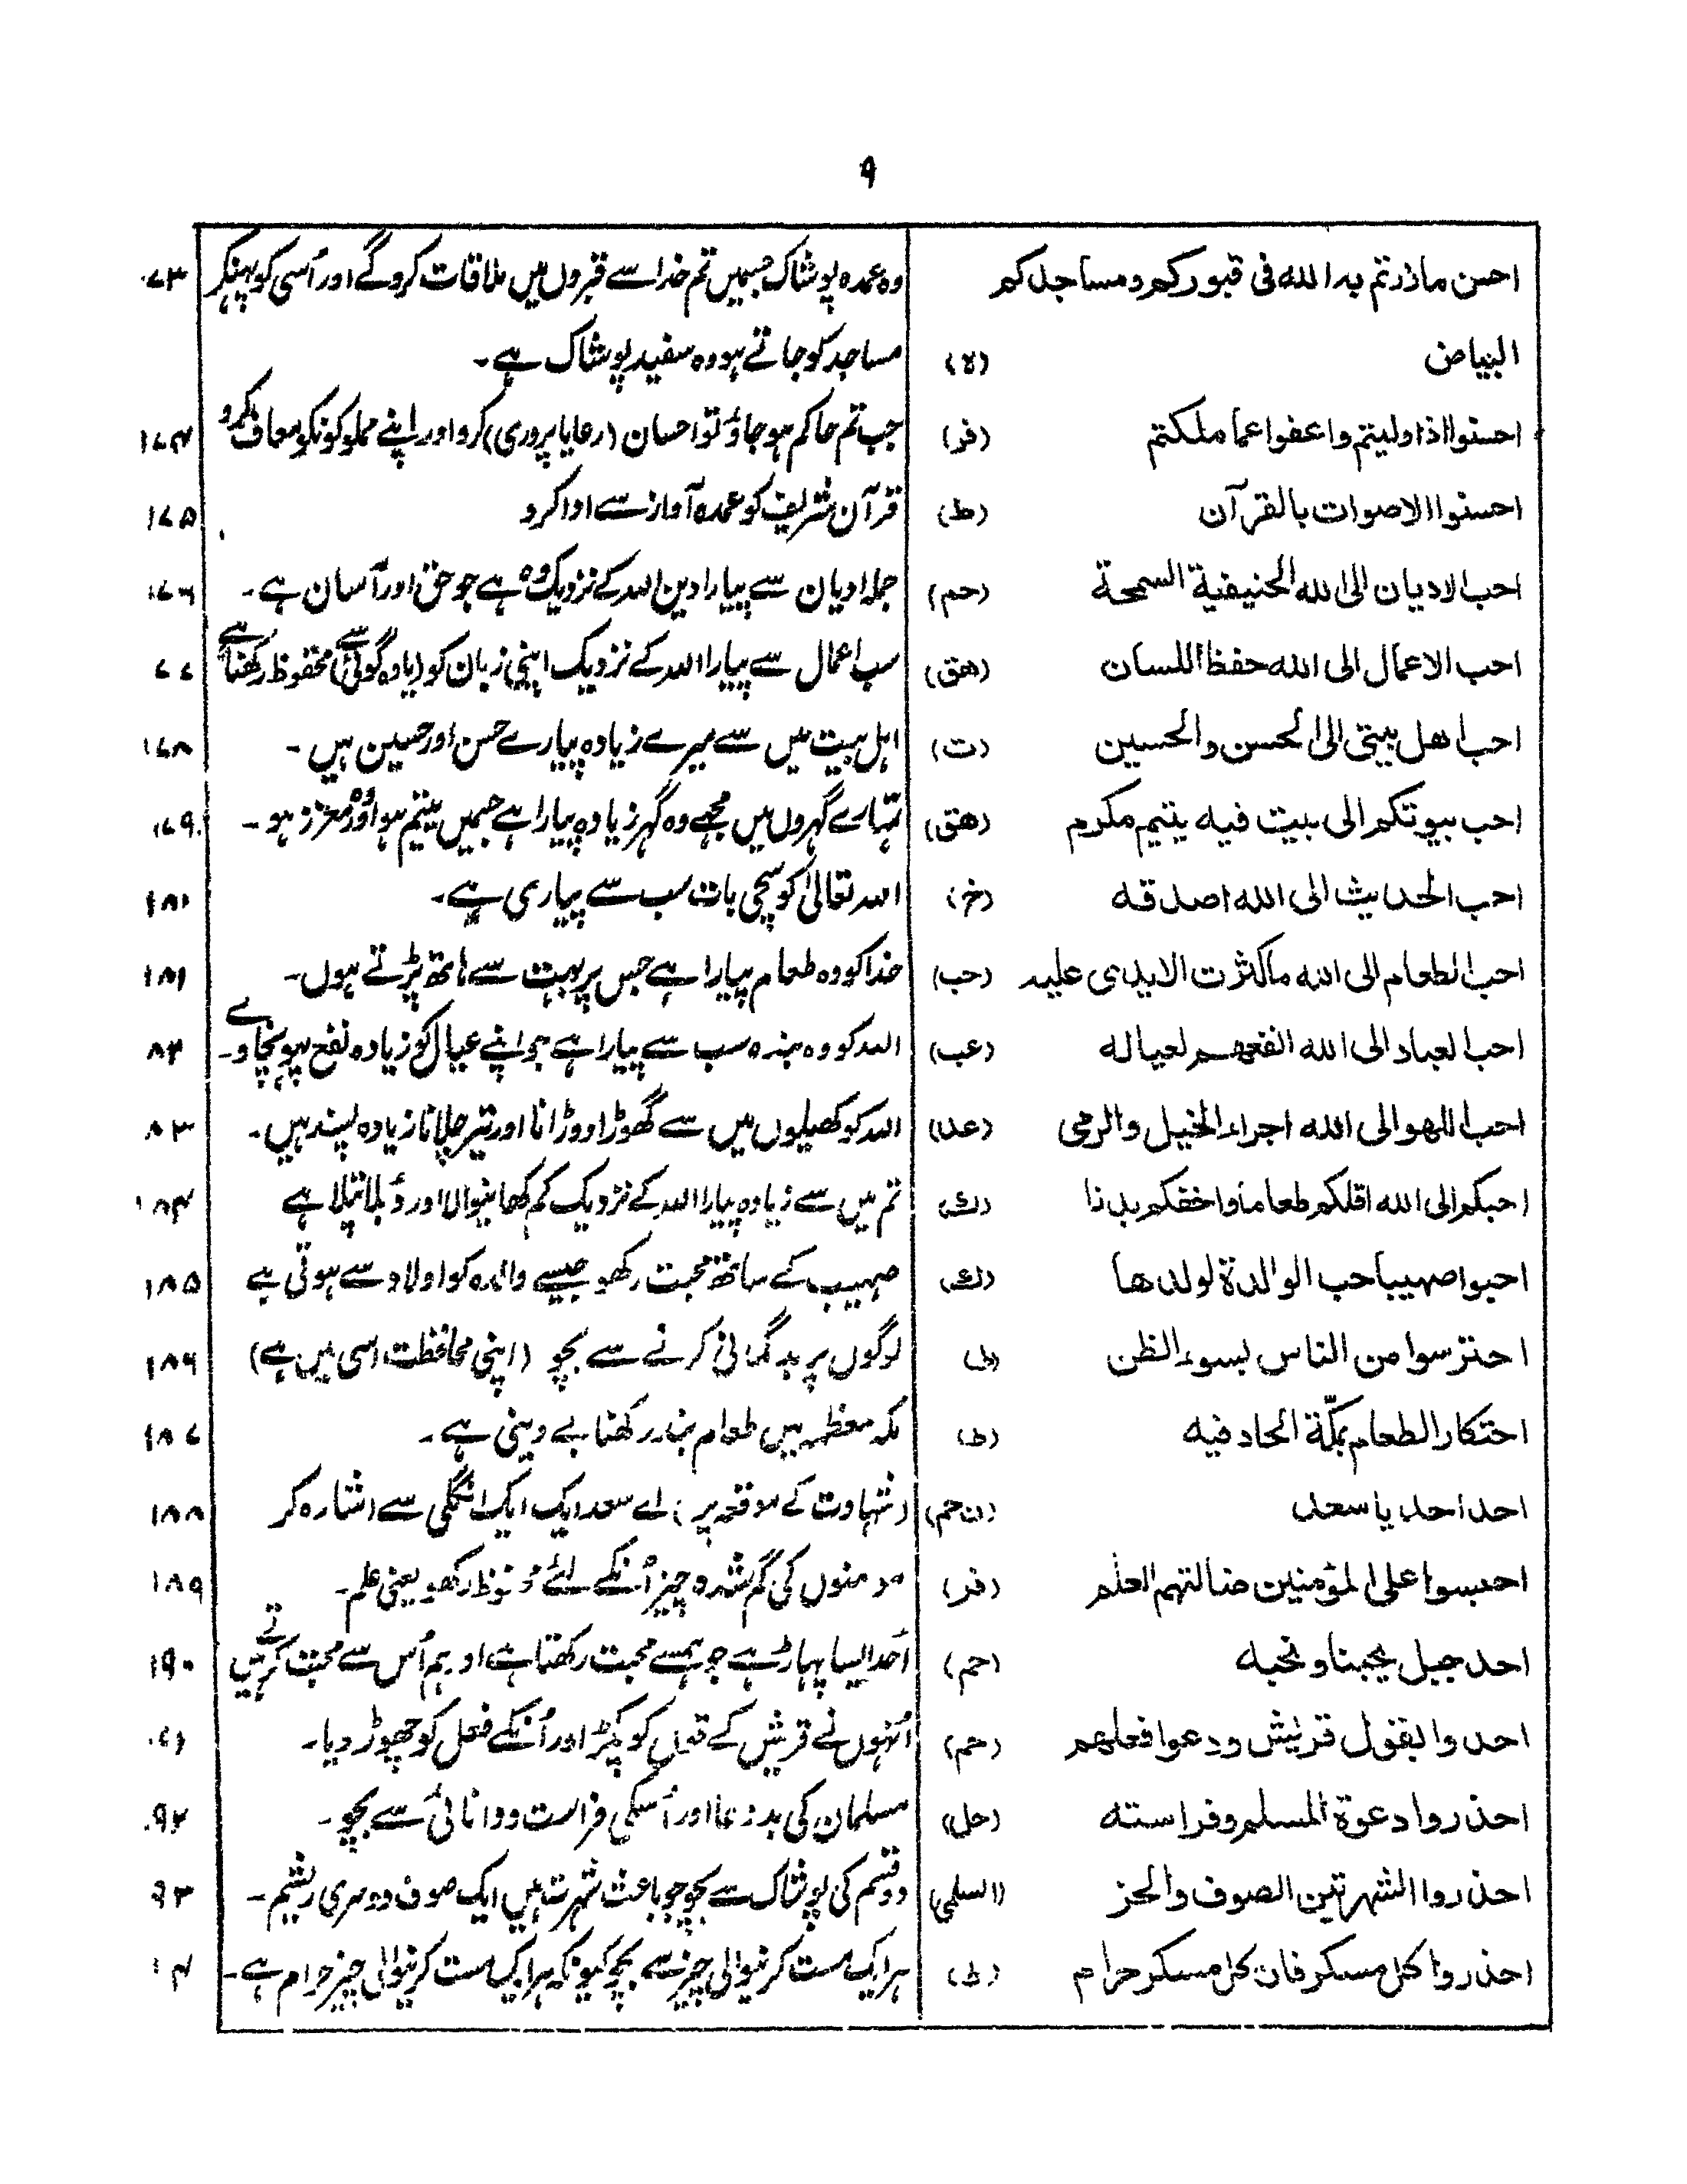 ۹
احسن ماذرتم به الله فی قبورکم و مساجدکم وہ عمدہ پوشاک جسمیں تم خدا سے قبروں میں ملاقات کروگے اور اُسی کو پہنکر ۱۷۳
البیاض (لا) مساجد کو جاتے ہو وہ سفید پوشاک ہے۔
احسنوا اذا ولیتم واعفوا عما ملکتم (فر) جب تم حاکم ہو جاؤ تو احسان (رعایا پروری) کرو اور اپنے مملوکونکو معاف کرو ۱۷۴
احسنوا الاصوات بالقرآن (ط) قرآن شریف کو عمدہ آواز سے ادا کرو ۱۷۵
احب الادیان الی الله الحنیفیة السمحة (حم) جملہ ادیان سے پیارا دین اللہ کے نزدیک وہ ہے جو حق اور آسان ہے۔ ۱۷۶
احب الاعمال الی الله حفظ اللسان (هق) سب اعمال سے پیارا اللہ کے نزدیک اپنی زبان کو (یاوہ گوئی سے) محفوظ رکھنا ہے ۷۷
احب اهل بیتی الی الحسن والحسین (ت) اہل بیت میں سے میرے زیادہ پیارے حسن اور حسین ہیں۔ ۱۷۸
احب بیوتکم الی بیت فیه یتیم مکرم (هق) تمہارے گہروں میں مجھے وہ گہر زیادہ پیارا ہے جسمیں یتیم ہو اور وہ معزز ہو۔ ۱۷۹
احب الحدیث الی الله اصدقه (خ) اللہ تعالیٰ کو سچی بات سب سے پیاری ہے۔ ۱۸۰
احب الطعام الی الله ماکثرت الایدی علیه (حب) خدا کو وہ طعام پیارا ہے جس پر بہت سے ہاتھ پڑتے ہوں۔ ۱۸۱
احب العباد الی الله انفعهم لعیاله (عب) اللہ کو وہ بندہ سب سے پیارا ہے جو اپنے عیال کو زیادہ نفع پہونچاوے۔ ۸۲
احب اللهو الی الله اجراء الخیل والرمی (عد) اللہ کو کھیلوں میں سے گھوڑا دوڑانا اور تیر چلانا زیادہ پسند ہیں۔ ۸۳
احبکم الی الله اقلکم طعاما واخفکم بدنا (ك) تم میں سے زیادہ پیارا اللہ کے نزدیک کم کھانیوالا اور دُبلا پتلا ہے ۱۸۴
احبوا صهیبا حب الوالدة لولدها (ك) صہیب کے ساتھ محبت رکھو جیسے والدہ کو اولاد سے ہوتی ہے ۱۸۵
احترسوا من الناس بسوء الظن (ط) لوگوں پر بدگمانی کرنے سے بچو (اپنی محافظت اسی میں ہے) ۱۸۶
احتکار الطعام بمکّة الحاد فیه (ط) مکہ معظمہ میں طعام بند رکھنا بے دینی ہے۔ ۱۸۷
احد احد یا سعد (ن حم) (شہادت کے موقعہ پر) اے سعد ایک ایک انگلی سے اشارہ کر ۱۸۸
احبسوا علی المؤمنین ضالتهم العلم (فر) مومنوں کی گم شدہ چیز اُنکے لئے محفوظ رکھو یعنی علم۔ ۱۸۹
احد جبل یحبنا و نحبه (حم) اُحد ایسا پہاڑ ہے جو ہمسے محبت رکھتا ہے اور ہم اُس سے محبت کرتے ہیں ۱۹۰
احد وا بقول قریش ودعوا فعلهم (حم) اُنہوں نے قریش کے قول کو پکڑا اور اُنکے فعل کو چھوڑ دیا۔
احذروا دعوة المسلم وفراسته (حل) مسلمان کی بد دعا اور اُسکی فراست و دانائی سے بچو۔ ۹۲
احذروا الشهرتین الصوف والخز (السلمی) دو قسم کی پوشاک سے بچو جو باعث شہرت ہیں ایک صوف دوسری ریشم۔ ۹۳
احذروا کل مسکر فان کل مسکر حرام (ط) ہر ایک مست کرنیوالی چیز سے بچو کیونکہ ہر ایک مست کرنیوالی چیز حرام ہے۔